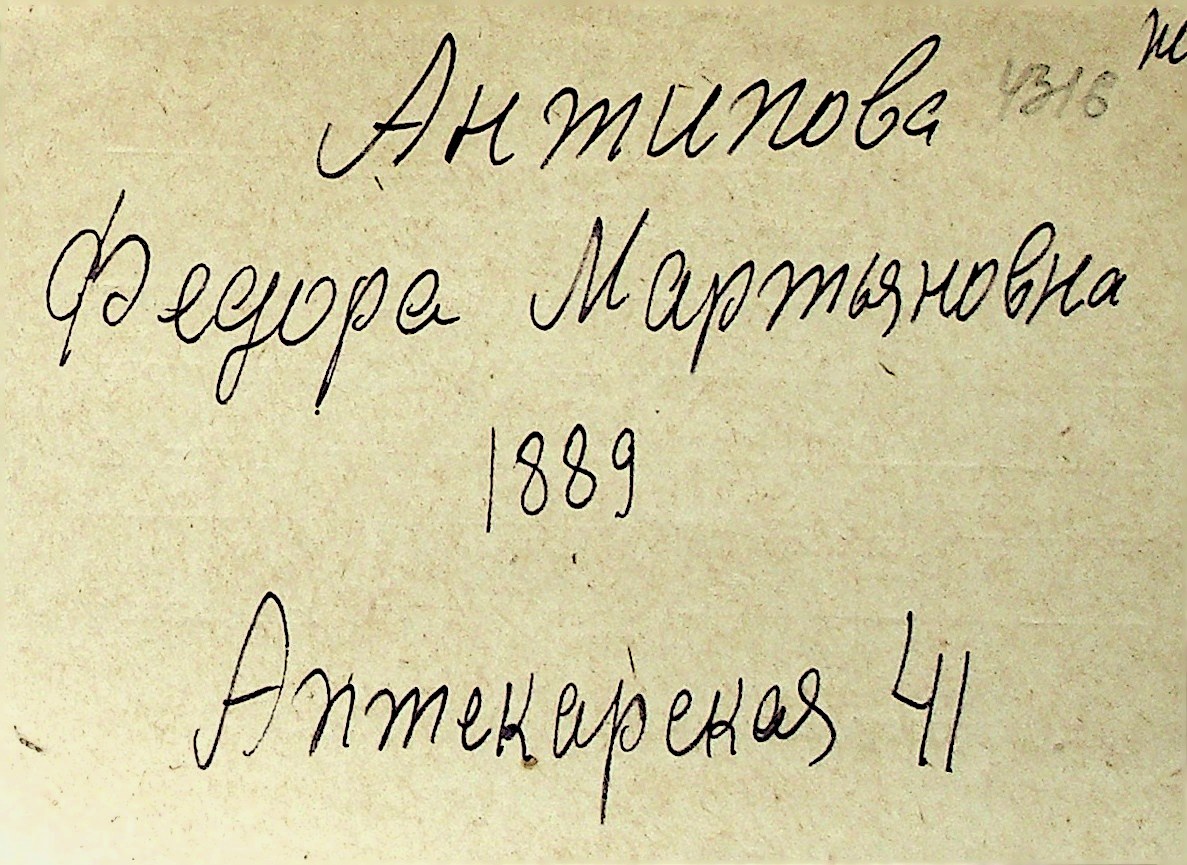 Антипова 4316
Федора Мартьяновна
1889
Аптекарская 41